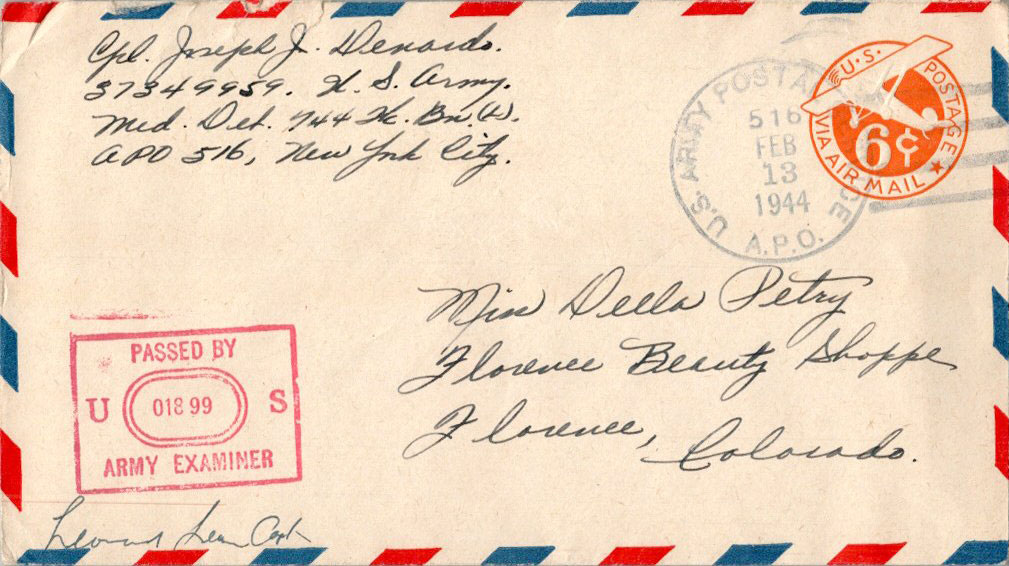 Cpl. Joseph J. Denardo.
37349959. U. S. Army.
Med. Det. 744 Tk. Bn. (L).
APO 516, New York City.
U.S. ARMY POSTAL
516
FEB
13
1944
A.P.O.
U.S. POSTAGE
6¢
VIA AIR MAIL
Miss Della Petry
Florence Beauty Shoppe
Florence,
Colorado.
PASSED BY
U 01899 S
ARMY EXAMINER
Capt